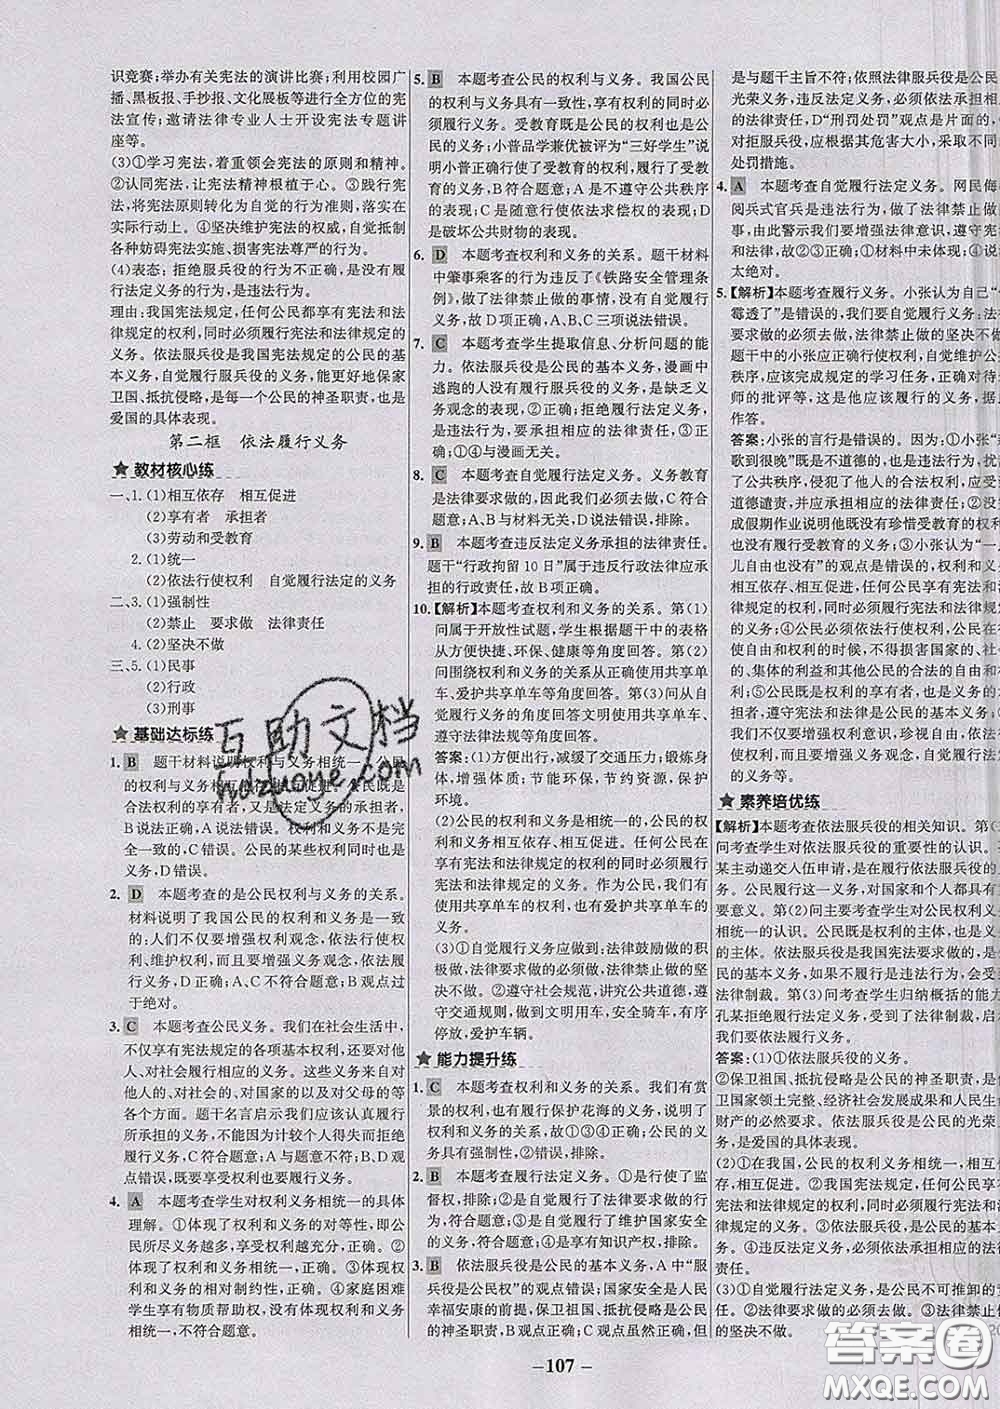 识竞赛；举办有关宪法的演讲比赛；利用校园广
播、黑板报、手抄报、文化展板等进行全方位的宪
法宣传；邀请法律专业人士开设宪法专题讲
座等。
(3)①学习宪法，着重领会宪法的原则和精神。
②认同宪法，让宪法精神根植于心。③践行宪
法，将宪法原则转化为自觉的行为准则，落实在
实际行动中。④坚决维护宪法的权威，自觉抵制
各种妨碍宪法实施、损害宪法尊严的行为。
(4)表态：拒绝服兵役的行为不正确，是没有履
行法定义务的行为，是违法行为。
理由：我国宪法规定，任何公民都享有宪法和法
律规定的权利，同时必须履行宪法和法律规定的义
务。依法服兵役是我国宪法规定的公民的基
本义务，自觉履行服兵役的义务，能更好地保家
卫国、抵抗侵略，是每一个公民的神圣职责，也是
爱国的具体表现。
第二框 依法履行义务
★教材核心练
一、1.(1)相互依存 相互促进
(2)享有者 承担者
(3)劳动和受教育
2.(1)统一
(2)依法行使权利 自觉履行法定的义务
二、3.(1)强制性
(2)禁止 要求做 法律责任
4.(2)坚决不做
三、5.(1)民事
(2)行政
(3)刑事
★基础达标练
1. B 题干材料说明权利与义务相统一，公民
的权利与义务相互依存、相互促进。公民既是
合法权利的享有者，又是法定义务的承担者，
B说法正确，A说法错误。权利和义务不是完
全一致的，C错误。公民的某些权利同时也是
义务，D错误。
2. D 本题考查的是公民权利与义务的关系。
材料说明了我国公民的权利和义务是一致
的：人们不仅要增强权利观念，依法行使权
利、维护权利，而且要增强义务观念，依法履
行法定的义务；A、C不符合题意；B观点过
于绝对。
3. C 本题考查公民义务。我们在社会生活中，
不仅享有宪法规定的各项基本权利，还要对他
人、对社会履行相应的义务。这些义务来自对
他人、对社会的、对国家的以及对父母的等
各个方面。题干名言启示我们应该认真履行
所承担的义务，不能因为计较个人得失而拒绝
承担义务，C符合题意；A与题意不符；B、D
观点错误，既要享受权利也要履行义务。
4. A 本题考查学生对权利义务相统一的具体
理解。①体现了权利和义务的对等性，即公
民所尽义务越多，享受权利越充分，正确。②
体现了权利和义务的依存性，正确。③体现
权利和义务的相对制约性，正确。④家庭困难
学生享有物质帮助权，没有体现权利和义务
相统一，不符合题意。
5. B 本题考查公民的权利与义务。我国公民
的权利与义务具有一致性，享有权利的同时必
须履行义务。受教育既是公民的权利也是公
民的义务；小普品学兼优被评为“三好学生”说
明小普正确行使了受教育的权利，履行了受教
育的义务，B符合题意；A是不遵守公共秩序
的表现；C是随意行使依法求偿权的表现；D
是破坏公共财物的表现。
6. D 本题考查权利和义务的关系。题干材料
中肇事乘客的行为违反了《铁路安全管理条
例》，做了法律禁止做的事情，没有自觉履行
义务。故D项正确，A、B、C三项说法错误。
7. C 本题考查学生提取信息、分析问题的能
力。依法服兵役是公民的基本义务，漫画中
逃跑的人没有履行服兵役的义务，是缺乏义
务观念的表现，②正确；拒绝履行法定义务，
要承担相应的法律责任，③正确；①④与漫画无关。
8. C 本题考查自觉履行法定义务。义务教育
是法律要求做的，因此我们必须去做，C符合
题意；A、B与材料无关，D说法错误，排除。
9. B 本题考查违反法定义务承担的法律责任。
题干“行政拘留10日”属于违反行政法律应承担
的行政责任，故B项正确。
10.【解析】本题考查权利和义务的关系。第(1)
问属于开放性试题，学生根据题干中的表格
从方便快捷、环保、健康等角度回答。第(2)
问围绕权利和义务的关系从正确使用共享单
车、爱护共享单车等角度回答。第(3)问从自
觉履行义务的角度回答文明使用共享单车、
遵守法律法规等角度回答。
答案：(1)方便出行，缓解了交通压力；锻炼身
体，增强体质；节能环保，节约资源，保护
环境。
(2)公民的权利和义务是相统一的，权利和义
务相互依存、相互促进。任何公民在
享有宪法和法律规定的权利的同时必须履行
宪法和法律规定的义务。作为公民，我们有
使用共享单车的权利，也有爱护共享单车的
义务。
(3)①自觉履行义务应做到：法律鼓励做的积
极做，法律要求做的必须做，法律禁止做的坚
决不做。②遵守社会规范，讲究公共道德，遵
守交通规则，做到文明用车，安全骑车，有序
停放，爱护车辆。
★能力提升练
1. C 本题考查权利和义务的关系。我们有赏
景的权利，也有履行保护花海的义务，说明了
权利和义务相统一，故①③④正确；公民的义
务具有强制性，②错误，排除。
2. B 本题考查履行法定义务。①是行使了监
督权，排除；②是履行了法律要求做的行
为，符合题意；③是自觉履行了维护国家安全
的义务，符合题意；④是享有知识产权，排除。
3. B 依法服兵役是公民的基本义务，A中“服
兵役是公民权”的观点错误；国家安全是人民
幸福安康的前提，保卫祖国、抵抗侵略是公民
的神圣职责，B观点正确；C观点虽然正确，但
是与题干主旨不符；依照法律服兵役是公民
光荣义务，违反法定义务，必须依法承担相应
的法律责任，D“刑罚处罚”观点是片面的，
对拒服兵役，应根据其危害大小，采取
处罚措施。
4. A 本题考查自觉履行法定义务。网民侮
阅兵式官兵是违法行为，做了法律禁止做
事，由此警示我们要增强法律意识，遵守宪
和法律，故②③正确；①材料中未体现；④说
太绝对。
5.【解析】本题考查履行义务。小张认为自己“
霉透了”是错误的，我们要履行义务：法
要求做的必须去做，法律禁止做的坚决不
题干中的小张应正确行使权利，自觉履行
义务，应该完成规定的学习任务，正确
师的批评等，这样才能自觉履行义务，据此
作答。
答案：小张的言行是错误的。因为：①小张“
歌到很晚”是不道德的，也是违法的，违反
了公共秩序，侵犯了他人的合法权益，应受
道德谴责，并应承担相应的法律责任；②没
成假期作业说明他没有珍惜受教育的权利
没有履行受教育的义务；③小张认为“一
儿自由也没有”的观点是错误的，权利和义务
相互依存、相互促进，任何公民在享有宪法和
律规定的权利的同时，必须履行宪法和法律
的义务；④公民必须依法行使权利，在行使
和权利的时候，不得损害国家的、社会
的、集体的利益和其他公民的合法的自由和
利；⑤公民既是权利的享有者又是义务的承
，要遵守宪法和法律，不仅要增强权利
我们不仅要增强义务观念，自觉履行
的义务等。
★素养培优练
【解析】本题考查依法服兵役的相关知识。第(
问考查学生对依法服兵役的重要性的认识。
某主动递交入伍申请，是在履行依法服兵役
务。公民履行这一义务，对国家和个人都具有
要意义。第(2)问主要考查学生对公民权利义
一的认识。公民既是权利的主体，也是义
的主体。依法服兵役是我国宪法要求做的，
民的基本义务，如果不履行是违法行为，会受
法律制裁。第(3)问考查学生归纳概括的能力
孔某拒绝履行义务，受到了法律制裁，启示
我们要依法履行义务。
答案：(1)①依法服兵役的义务。
②保卫祖国、抵抗侵略是公民的神圣职责，是
卫国家领土完整、经济社会发展成果和人民生
财产的必要条件，参军入伍是公民的光荣
务，是爱国的具体表现。
(2)①在我国，公民的权利和义务相统一，相
存、相互促进。②任何公民在享有宪法和法律
权利的同时，必须履行宪法和法律规定的义务
③依法服兵役是公民的基本义务，必须履
④违反法定义务，必须依法承担相应的法
责任。
(3)①自觉履行法定义务，是公民不可推卸的责
任。②法律要求做的必须去做。③法律禁止
的坚决不做。
– 107 –
互助文档
hdzuoye.com
答案圈
MXQE.COM